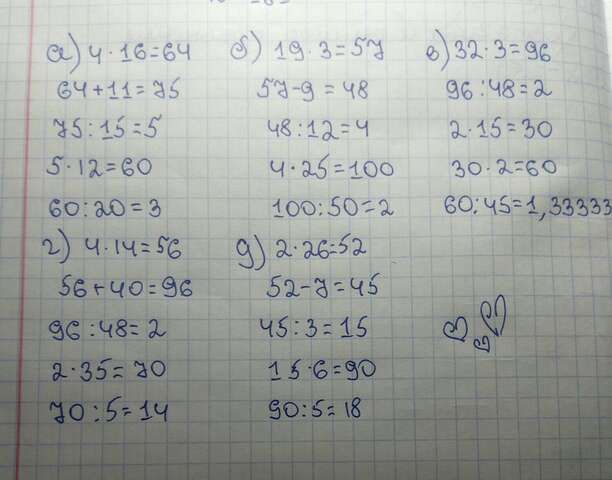 а) 4 · 16 = 64
64 + 11 = 75
75 : 15 = 5
5 · 12 = 60
60 : 20 = 3
б) 19 · 3 = 57
57 - 9 = 48
48 : 12 = 4
4 · 25 = 100
100 : 50 = 2
в) 32 · 3 = 96
96 : 48 = 2
2 · 15 = 30
30 · 2 = 60
60 : 45 = 1,33333
г) 4 · 14 = 56
56 + 40 = 96
96 : 48 = 2
2 · 35 = 70
70 : 5 = 14
д) 2 · 26 = 52
52 - 7 = 45
45 : 3 = 15
15 · 6 = 90
90 : 5 = 18